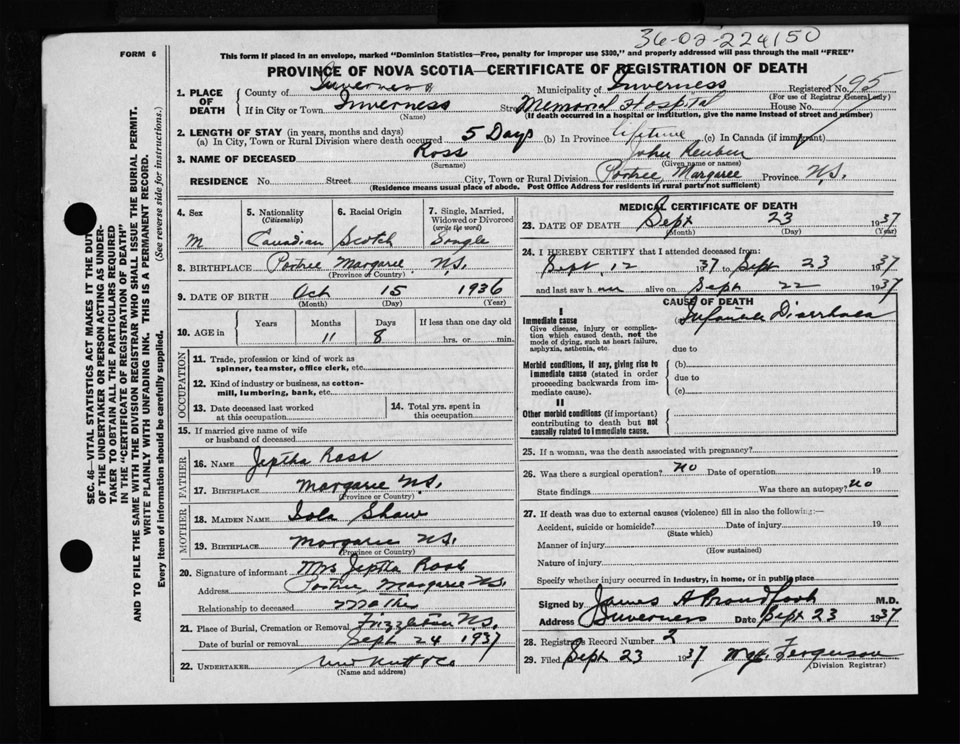 36-02-224150
FORM 6
This form if placed in an envelope, marked "Dominion Statistics—Free, penalty for improper use $300," and properly addressed will pass through the mail "FREE"
PROVINCE OF NOVA SCOTIA—CERTIFICATE OF REGISTRATION OF DEATH
1. PLACE OF DEATH County of Inverness Municipality of Inverness Registered No. 95
(For use of Registrar General only)
If in City or Town Inverness Street Memorial Hospital House No.
(Name) (If death occurred in a hospital or institution, give the name instead of street and number)
2. LENGTH OF STAY (in years, months and days)
(a) In City, Town or Rural Division where death occurred 5 Days (b) In Province Lifetime (c) In Canada (if immigrant)
3. NAME OF DECEASED Ross John Reuben
(Surname) (Given name or names)
RESIDENCE No. Street City, Town or Rural Division Portree, Margaree Province N.S.
(Residence means usual place of abode. Post Office Address for residents in rural parts not sufficient)
4. Sex 5. Nationality (Citizenship) 6. Racial Origin 7. Single, Married, Widowed or Divorced (write the word)
M Canadian Scotch Single
8. BIRTHPLACE Portree Margaree N.S.
(Province or Country)
9. DATE OF BIRTH Oct 15 1936
(Month) (Day) (Year)
10. AGE in Years Months Days If less than one day old
11 8 hrs. or min.
OCCUPATION
11. Trade, profession or kind of work as spinner, teamster, office clerk, etc.
12. Kind of industry or business, as cotton-mill, lumbering, bank, etc.
13. Date deceased last worked at this occupation
14. Total yrs. spent in this occupation
15. If married give name of wife or husband of deceased
FATHER
16. NAME Jeptha Ross
17. BIRTHPLACE Margaree N.S.
(Province or Country)
MOTHER
18. MAIDEN NAME Iola Shaw
19. BIRTHPLACE Margaree N.S.
(Province or Country)
20. Signature of informant Mrs Jeptha Ross
Address Portree, Margaree N.S.
Relationship to deceased Mother
21. Place of Burial, Cremation or Removal N.S.
Date of burial or removal Sept 24 1937
22. UNDERTAKER
(Name and address)
MEDICAL CERTIFICATE OF DEATH
23. DATE OF DEATH Sept 23 1937
(Month) (Day) (Year)
24. I HEREBY CERTIFY that I attended deceased from:
Sept 12 1937 to Sept 23 1937
and last saw h alive on Sept 22 1937
CAUSE OF DEATH
I
Immediate cause Infantile Diarrhoea
Give disease, injury or complication which caused death, not the mode of dying, such as heart failure, asphyxia, asthenia, etc.
due to
Morbid conditions, if any, giving rise to immediate cause (stated in order proceeding backwards from immediate cause).
(b)
due to
(c)
II
Other morbid conditions (if important) contributing to death but not causally related to immediate cause.
25. If a woman, was the death associated with pregnancy?
26. Was there a surgical operation? no Date of operation 19
State findings Was there an autopsy? no
27. If death was due to external causes (violence) fill in also the following:—
Accident, suicide or homicide? Date of injury 19
(State which)
Manner of injury
(How sustained)
Nature of injury
Specify whether injury occurred in industry, in home, or in public place
Signed by James A Proudfoot M.D.
Address Inverness Date Sept 23 1937
28. Registrar's Record Number 2
29. Filed Sept 23 1937 Ferguson
(Division Registrar)
SEC. 46—VITAL STATISTICS ACT MAKES IT THE DUTY
OF THE UNDERTAKER OR PERSON ACTING AS UNDER-
TAKER TO OBTAIN ALL THE PARTICULARS REQUIRED
IN THE "CERTIFICATE OF REGISTRATION OF DEATH"
AND TO FILE THE SAME WITH THE DIVISION REGISTRAR WHO SHALL ISSUE THE BURIAL PERMIT.
WRITE PLAINLY WITH UNFADING INK. THIS IS A PERMANENT RECORD.
Every item of information should be carefully supplied. (See reverse side for instructions.)